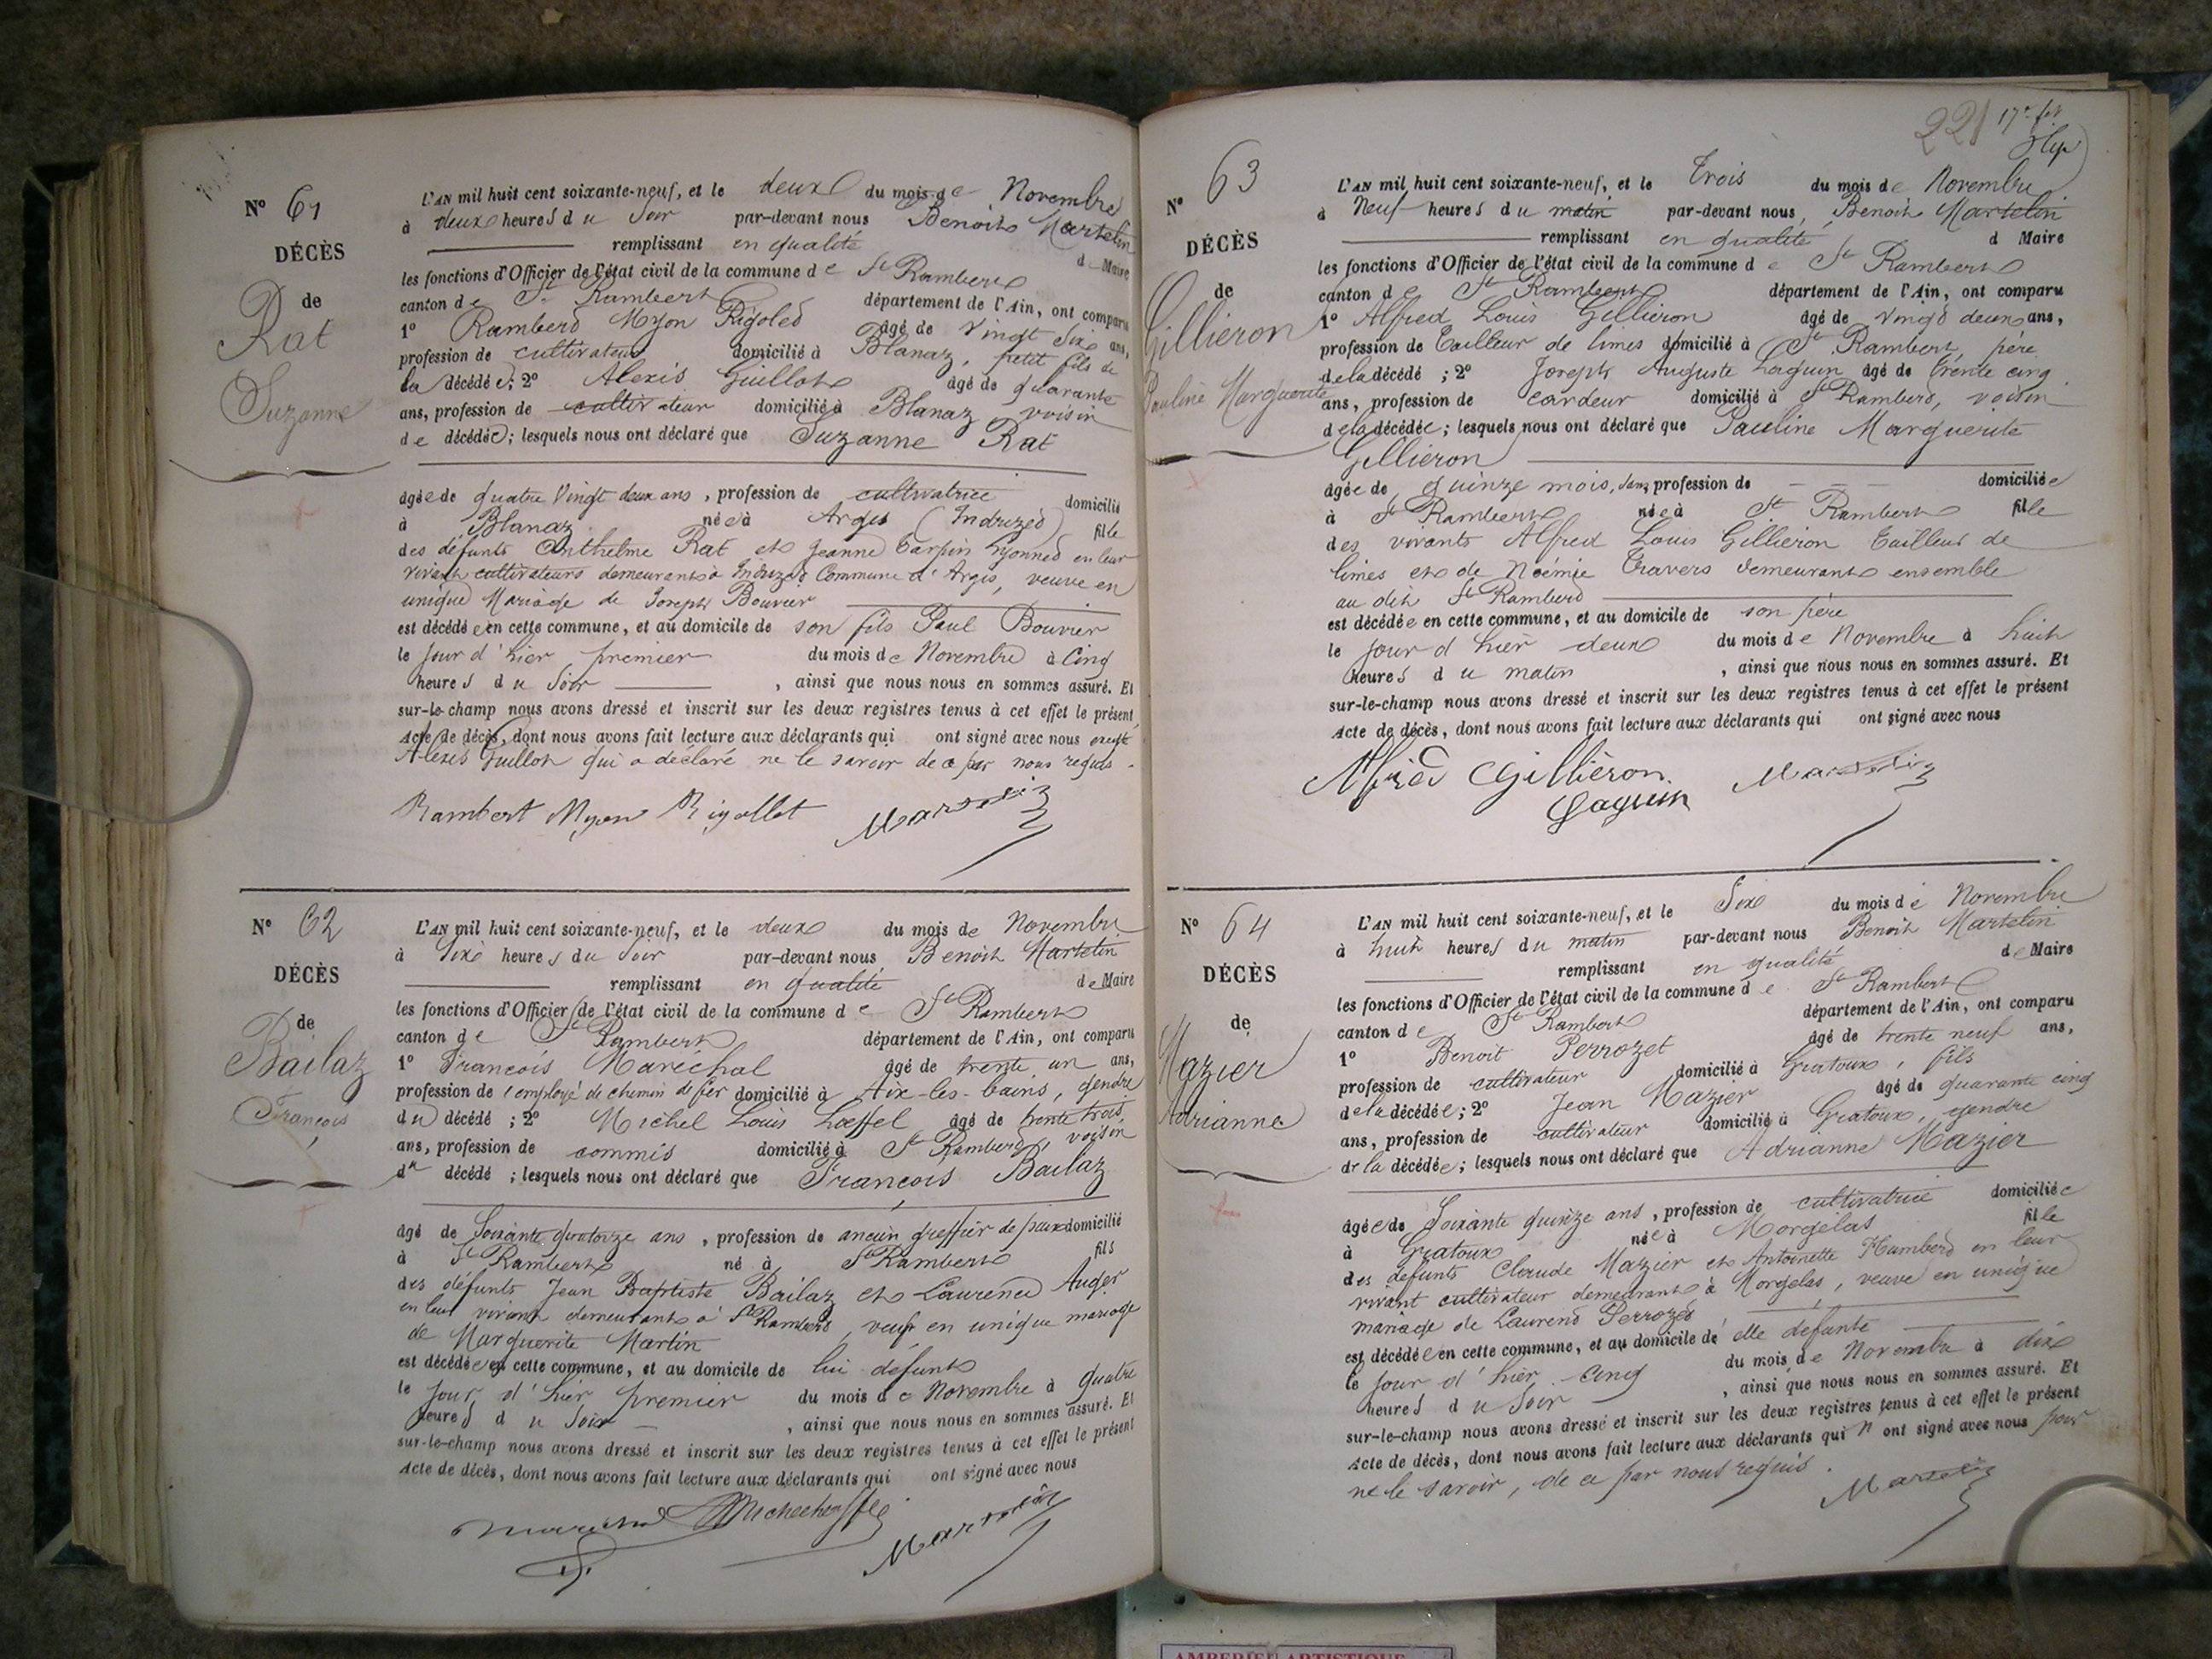 N° 61
DÉCÈS
de
Rat
Suzanne
L'AN mil huit cent soixante-neuf, et le deux du mois de Novembre
à deux heures du Soir par-devant nous Benoit Martelin
remplissant en qualité de Maire
les fonctions d'Officier de l'état civil de la commune de St Rambert
canton de St Rambert département de l'Ain, ont comparu
1° Rambert Myon Rigolet âgé de vingt six ans,
profession de cultivateur domicilié à Blanaz, petit fils de
la décédée; 2° Alexis Guillot âgé de quarante
ans, profession de cultivateur domicilié à Blanaz voisin
de décédée; lesquels nous ont déclaré que Suzanne Rat
âgée de quatre Vingt deux ans, profession de cultivatrice domicilié
à Blanaz née à Argis (Indrized) fille
des défunts Anthelme Rat et Jeanne Carpin Lyonned en leur
vivant cultivateurs demeurant à Indrized Commune d'Argis, veuve en
unique Mariage de Joseph Bouvier
est décédée en cette commune, et au domicile de son fils Paul Bouvier
le jour d'hier premier du mois de Novembre à Cinq
heures du Soir , ainsi que nous nous en sommes assuré. Et
sur-le-champ nous avons dressé et inscrit sur les deux registres tenus à cet effet le présent
Acte de décès, dont nous avons fait lecture aux déclarants qui ont signé avec nous excepté
Alexis Guillot qui a déclaré ne le savoir de ce par nous requis.
Rambert Myon Rigollet Martelin
N° 62
DÉCÈS
de
Bailaz
François
L'AN mil huit cent soixante-neuf, et le deux du mois de Novembre
à Six heures du Soir par-devant nous Benoit Martelin
remplissant en qualité de Maire
les fonctions d'Officier de l'état civil de la commune de St Rambert
canton de St Rambert département de l'Ain, ont comparu
1° François Maréchal âgé de trente un ans,
profession de employé de chemin de fer domicilié à Aix-les-bains, gendre
du décédé; 2° Michel Louis Loeffel âgé de trente trois
ans, profession de commis domicilié à St Rambert, voisin
du décédé; lesquels nous ont déclaré que François Bailaz
âgé de Soixante quatorze ans, profession de ancien greffier de paix domicilié
à St Rambert né à St Rambert fils
des défunts Jean Baptiste Bailaz et Laurence Auger
en leur vivant demeurant à St Rambert, veuf en unique mariage
de Marguerite Martin
est décédé en cette commune, et au domicile de lui défunt
le jour d'hier premier du mois de Novembre à quatre
heures du Soir , ainsi que nous nous en sommes assuré. Et
sur-le-champ nous avons dressé et inscrit sur les deux registres tenus à cet effet le présent
Acte de décès, dont nous avons fait lecture aux déclarants qui ont signé avec nous
Marechal Martelin
221
N° 63
DÉCÈS
de
Gillieron
Pauline Marguerite
L'AN mil huit cent soixante-neuf, et le Trois du mois de Novembre
à Neuf heures du matin par-devant nous, Benoit Martelin
remplissant en qualité d Maire
les fonctions d'Officier de l'état civil de la commune de St Rambert
canton de St Rambert département de l'Ain, ont comparu
1° Alfred Louis Gillieron âgé de vingt deux ans,
profession de Tailleur de limes domicilié à St Rambert, père
de la décédé; 2° Joseph Auguste Laguin âgé de trente cinq
ans, profession de cardeur domicilié à St Rambert, voisin
de la décédée; lesquels nous ont déclaré que Pauline Marguerite
Gillieron
âgée de quinze mois, sans profession de domiciliée
à St Rambert née à St Rambert fille
des vivants Alfred Louis Gillieron Tailleur de
limes et de Noémie Travers demeurant ensemble
au dit St Rambert
est décédée en cette commune, et au domicile de son père
le jour d'hier deux du mois de Novembre à huit
heures du matin , ainsi que nous nous en sommes assuré. Et
sur-le-champ nous avons dressé et inscrit sur les deux registres tenus à cet effet le présent
Acte de décès, dont nous avons fait lecture aux déclarants qui ont signé avec nous
Alfred Gilliéron. Martelin
Laguin
N° 64
DÉCÈS
de
Mazier
Adrianne
L'AN mil huit cent soixante-neuf, et le Six du mois de Novembre
à huit heures du matin par-devant nous Benoit Martelin
remplissant en qualité de Maire
les fonctions d'Officier de l'état civil de la commune de St Rambert
canton de St Rambert département de l'Ain, ont comparu
1° Benoit Perrozet âgé de trente neuf ans,
profession de cultivateur domicilié à Gratoux, fils
de la décédée; 2° Jean Mazier âgé de quarante cinq
ans, profession de cultivateur domicilié à Gratoux, gendre
de la décédée; lesquels nous ont déclaré que Adrianne Mazier
âgée de Soixante quinze ans, profession de cultivatrice domiciliée
à Gratoux née à Morgelas fille
des défunts Claude Mazier et Antoinette Humberd en leur
vivant cultivateur demeurant à Morgelas, veuve en unique
mariage de Laurend Perrozed
est décédée en cette commune, et au domicile de elle défunte
le jour d'hier cinq du mois de Novembre à dix
heures du Soir , ainsi que nous nous en sommes assuré. Et
sur-le-champ nous avons dressé et inscrit sur les deux registres tenus à cet effet le présent
Acte de décès, dont nous avons fait lecture aux déclarants qui n'ont signé avec nous pour
ne le savoir, de ce par nous requis.
Martelin
AMBERIEU ARTISTIQUE